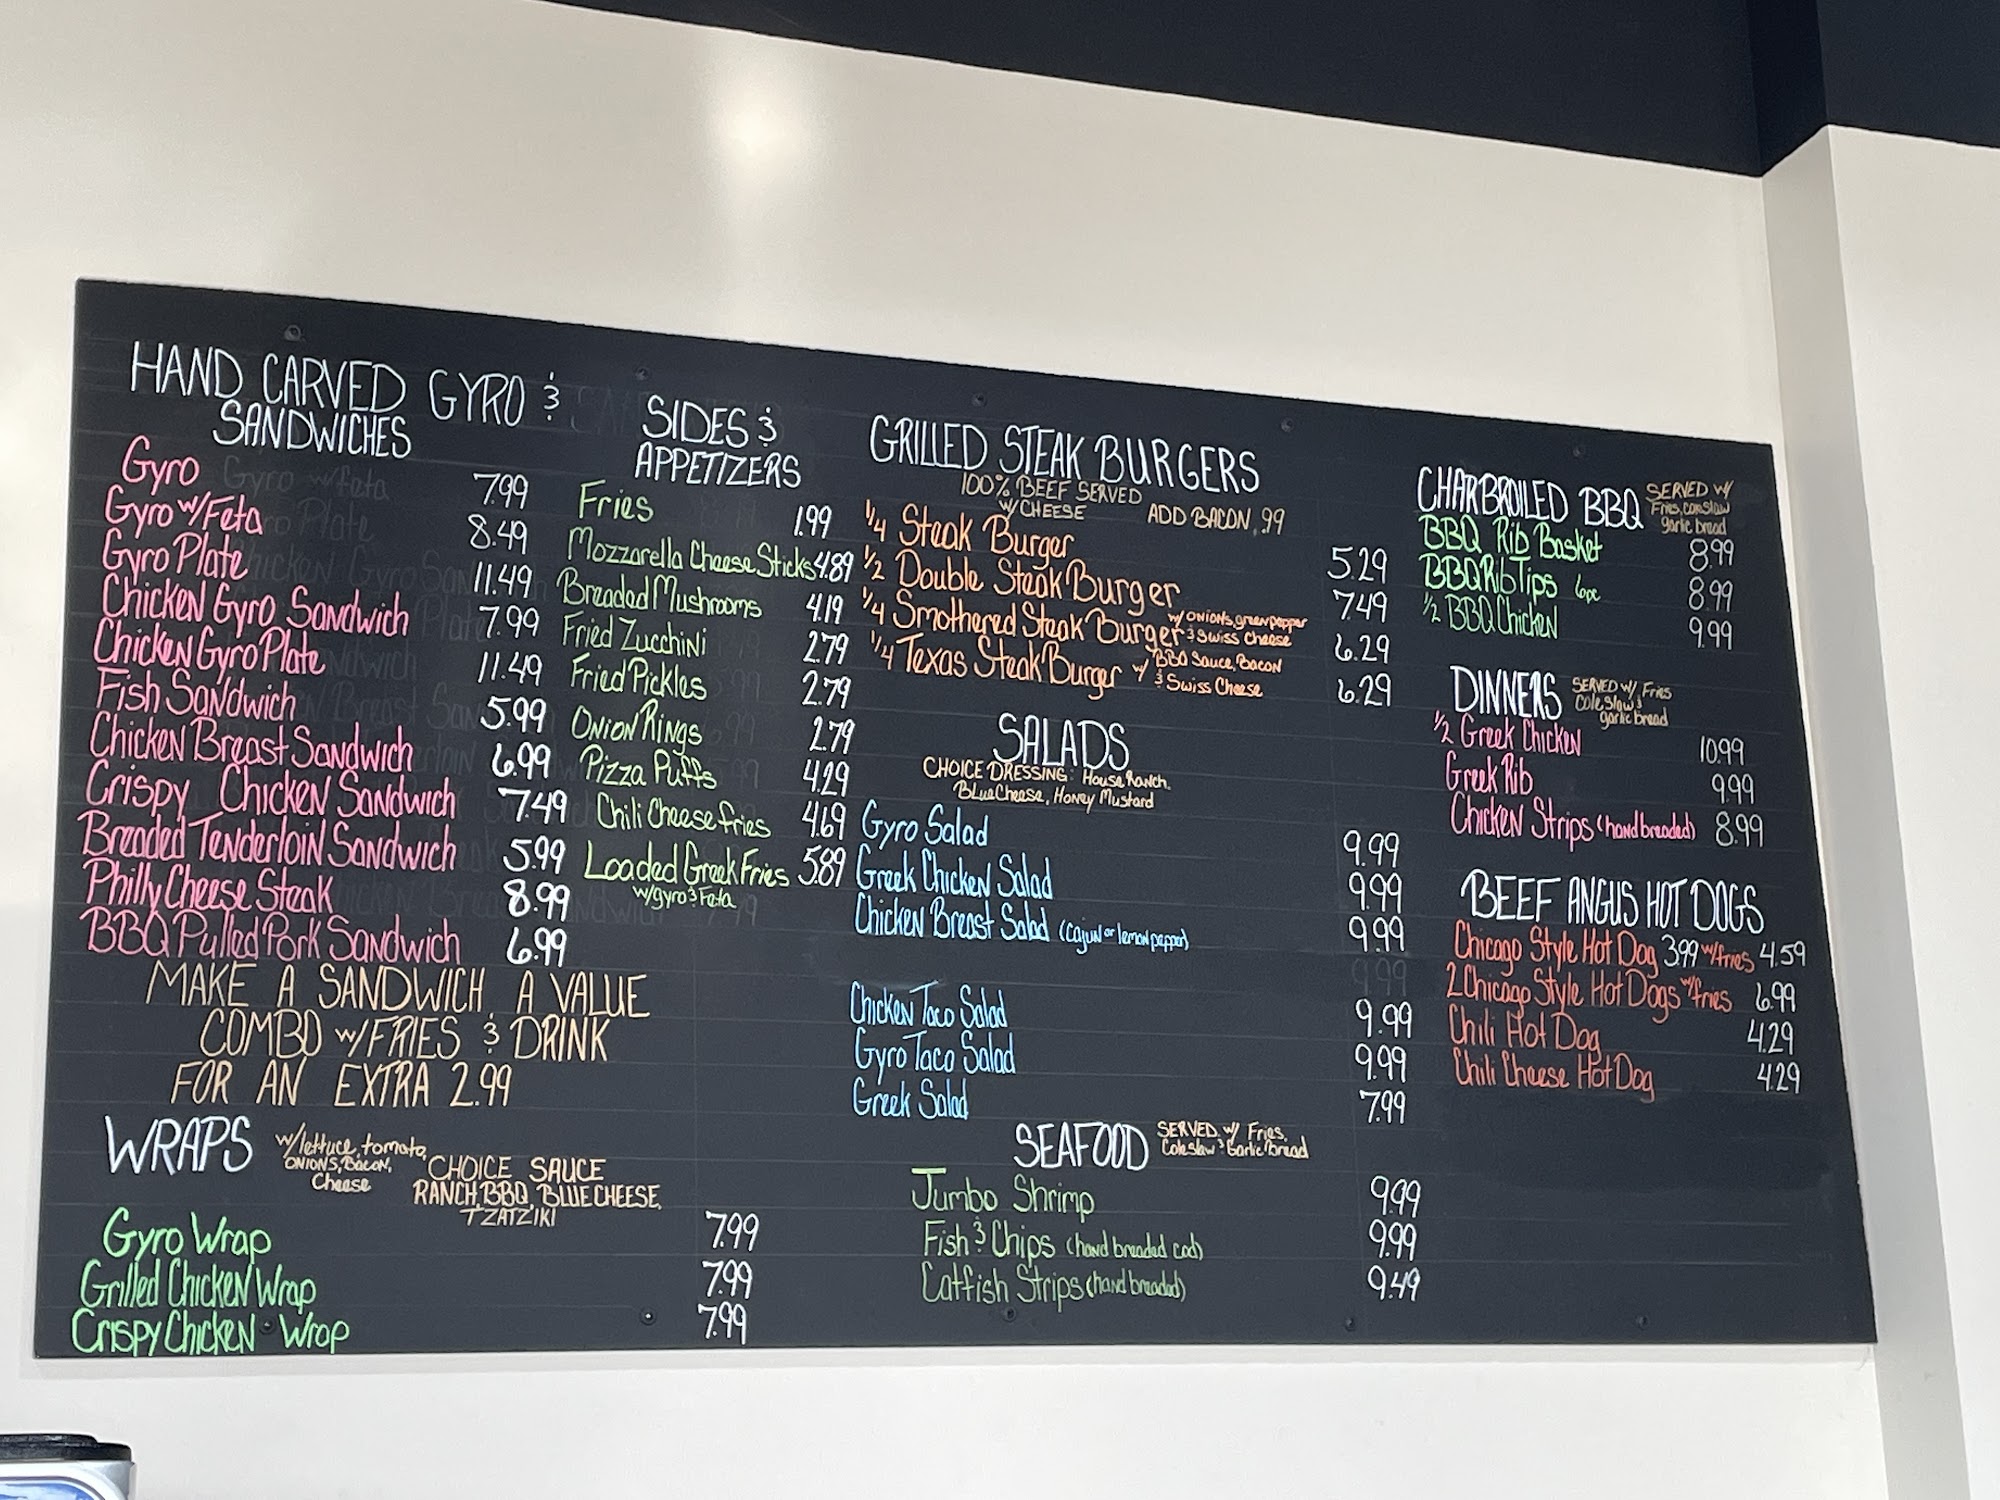 HAND CARVED GYRO &
SANDWICHES
Gyro 7.99
Gyro w/Feta 8.49
Gyro Plate 11.49
Chicken Gyro Sandwich 7.99
Chicken Gyro Plate 11.49
Fish Sandwich 5.99
Chicken Breast Sandwich 6.99
Crispy Chicken Sandwich 7.49
Breaded Tenderloin Sandwich 5.99
Philly Cheese Steak 8.99
BBQ Pulled Pork Sandwich 6.99
MAKE A SANDWICH A VALUE
COMBO w/FRIES & DRINK
FOR AN EXTRA 2.99
WRAPS w/lettuce, tomato,
ONIONS, Bacon,
Cheese
CHOICE SAUCE
RANCH, BBQ, BLUE CHEESE,
TZATZIKI
Gyro Wrap 7.99
Grilled Chicken Wrap 7.99
Crispy Chicken Wrap 7.99
SIDES &
APPETIZERS
Fries 1.99
Mozzarella Cheese Sticks 4.89
Breaded Mushrooms 4.19
Fried Zucchini 2.79
Fried Pickles 2.79
Onion Rings 2.79
Pizza Puffs 4.29
Chili Cheese fries 4.69
Loaded Greek Fries 5.89
w/gyro & Feta
GRILLED STEAK BURGERS
100% BEEF SERVED
W/CHEESE
ADD BACON .99
1/4 Steak Burger 5.29
1/2 Double Steak Burger 7.49
1/4 Smothered Steak Burger w/ onions, green pepper
& Swiss Cheese 6.29
1/4 Texas Steak Burger w/ BBQ Sauce, Bacon
& Swiss Cheese 6.29
SALADS
CHOICE DRESSING: House Ranch,
Blue Cheese, Honey Mustard
Gyro Salad 9.99
Greek Chicken Salad 9.99
Chicken Breast Salad (cajun or lemon pepper) 9.99
Chicken Taco Salad 9.99
Gyro Taco Salad 9.99
Greek Salad 7.99
SEAFOOD SERVED w/ Fries,
Coleslaw & Garlic Bread
Jumbo Shrimp 9.99
Fish & Chips (hand breaded cod) 9.99
Catfish Strips (hand breaded) 9.49
CHARBROILED BBQ SERVED w/
Fries, coleslaw
garlic bread
BBQ Rib Basket 8.99
BBQ Rib Tips 6pc 8.99
1/2 BBQ Chicken 9.99
DINNERS SERVED w/ Fries
Coleslaw &
garlic bread
1/2 Greek Chicken 10.99
Greek Rib 9.99
Chicken Strips (hand breaded) 8.99
BEEF ANGUS HOT DOGS
Chicago Style Hot Dog 3.99 w/fries 4.59
2 Chicago Style Hot Dogs w/fries 6.99
Chili Hot Dog 4.29
Chili Cheese Hot Dog 4.29